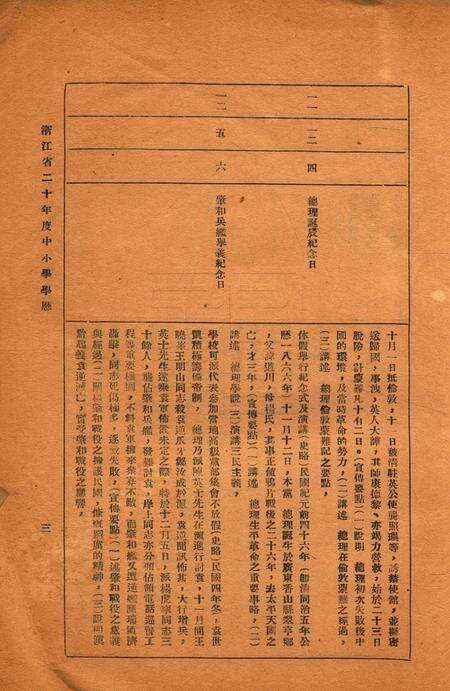 十月一日抵倫敦,十一日被清駐英公使龔照瑗等,誘禁使館,並擬密
送歸國,事洩,英人大譁,其師康德黎,亦竭力營救,始於二十三日
脫險,計蒙難凡十有二日。(宣傳要點)(一)說明 總理初次失敗後中
國的環境,及當時革命的勢力,(二)講述 總理在倫敦蒙難之經過,
(三)講述 總理倫敦蒙難記之要點,
一一 一二 四 總理誕辰紀念日
休假舉行紀念式及演講(史略)民國紀元前四十六年(即清同治五年公
歷一八六六年)十一月十二日,本黨 總理誕生於廣東香山縣翠亨鄉
,父達道川,母楊氏,其事正値鴉片戰後之二十六年,去太平天國之
亡,才三年,(宣傳要點)(一)講述 總理生平革命之重要事略,(二)
講述 總理學說(三)演講三民主義,
一二 五 六 肇和兵艦舉義紀念日
學校可派代表參加當地高級黨部集會不放假(史略)民國四年冬,袁世
凱積極籌備帝制, 總理乃派陳英士先生在滬進行討袁,十一月間王
曉峯王明山同志殺袁逆爪牙鄭汝成於滬,袁逆聞訊怖甚,大行增兵,
英士先生遂乘袁軍佈置未定之際,特於十二月五日,派楊虎率同志三
十餘人,襲佔肇和兵艦,發難討袁,岸上同志亦分頭佔領電話巡警工
程等重要機關,不料袁軍擁來衆寡不敵,而肇和艦又遭
轟擊,同志死傷極多,遂致失敗,(宣傳要點)(一)述肇和戰役之意義
與經過(二)闡揚肇和戰役之擁護民國,
黔起義袁逆滅亡,實為肇和戰役之應響,
浙江省二十年度中小學學歷
三